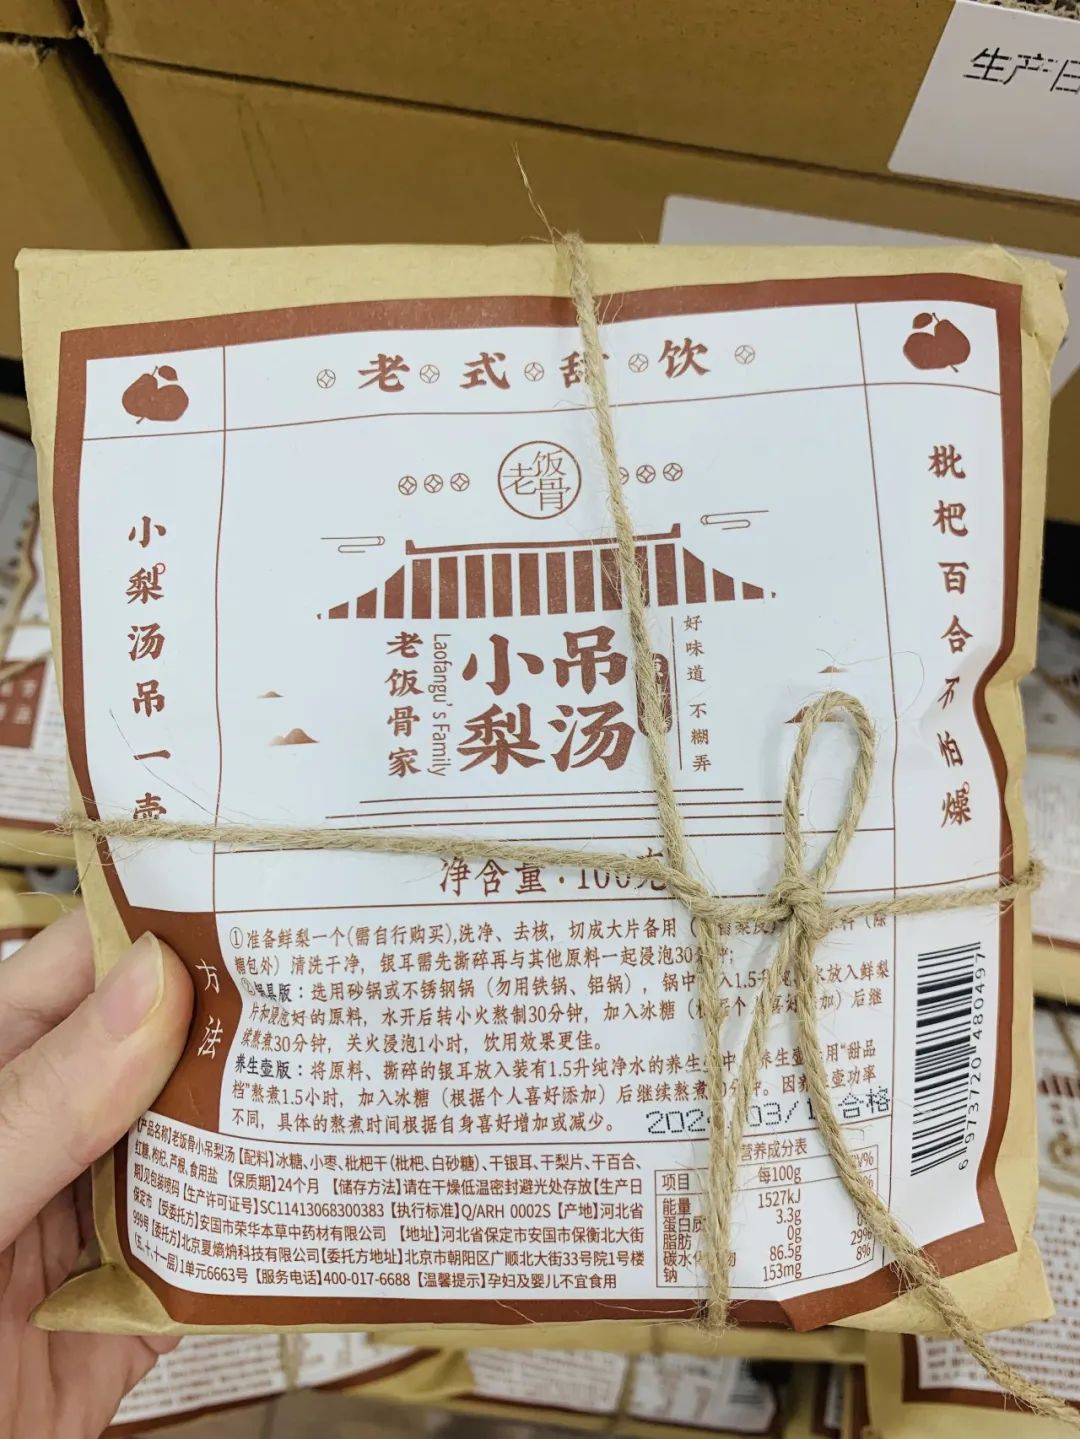 生产日
老式甜饮
老饭骨
小梨汤吊一壶
枇杷百合不怕燥
老饭骨家
Laofangu's Family
小吊
梨汤
好味道 不糊弄
净含量·100克
方法
①准备鲜梨一个(需自行购买),洗净、去核,切成大片备用
糖包外)清洗干净,银耳需先撕碎再与其他原料一起浸泡30分钟;
锅具版:选用砂锅或不锈钢锅(勿用铁锅、铝锅),锅中 入1.5升纯 水放入鲜梨
片和浸泡好的原料,水开后转小火熬制30分钟,加入冰糖(根据个人喜好添加)后继
续熬煮30分钟,关火浸泡1小时,饮用效果更佳。
养生壶版:将原料、撕碎的银耳放入装有1.5升纯净水的养生壶中 养生壶 用“甜品
档”熬煮1.5小时,加入冰糖(根据个人喜好添加)后继续熬煮 0分钟。因养生壶功率
不同,具体的熬煮时间根据自身喜好增加或减少。
合格
【产品名称】老饭骨小吊梨汤【配料】冰糖、小枣、枇杷干(枇杷、白砂糖)、干银耳、干梨片、干百合、
红糖、枸杞、芦根、食用盐 【保质期】24个月 【储存方法】请在干燥低温密封避光处存放【生产日
期】见包装喷码【生产许可证号】SC11413068300383【执行标准】Q/ARH 0002S【产地】河北省
保定市 【受委托方】安国市荣华本草中药材有限公司 【地址】河北省保定市安国市保衡北大街
999号【委托方】北京夏熵炳科技有限公司【委托方地址】北京市朝阳区广顺北大街33号院1号楼
(五、十、十一层)1单元6663号【服务电话】400-017-6688【温馨提示】孕妇及婴儿不宜食用
营养成分表
项目 每100g
能量 1527kJ
蛋白质 3.3g
脂肪 0g
碳水化 物 86.5g 29%
钠 153mg 8%
6 973720 480497